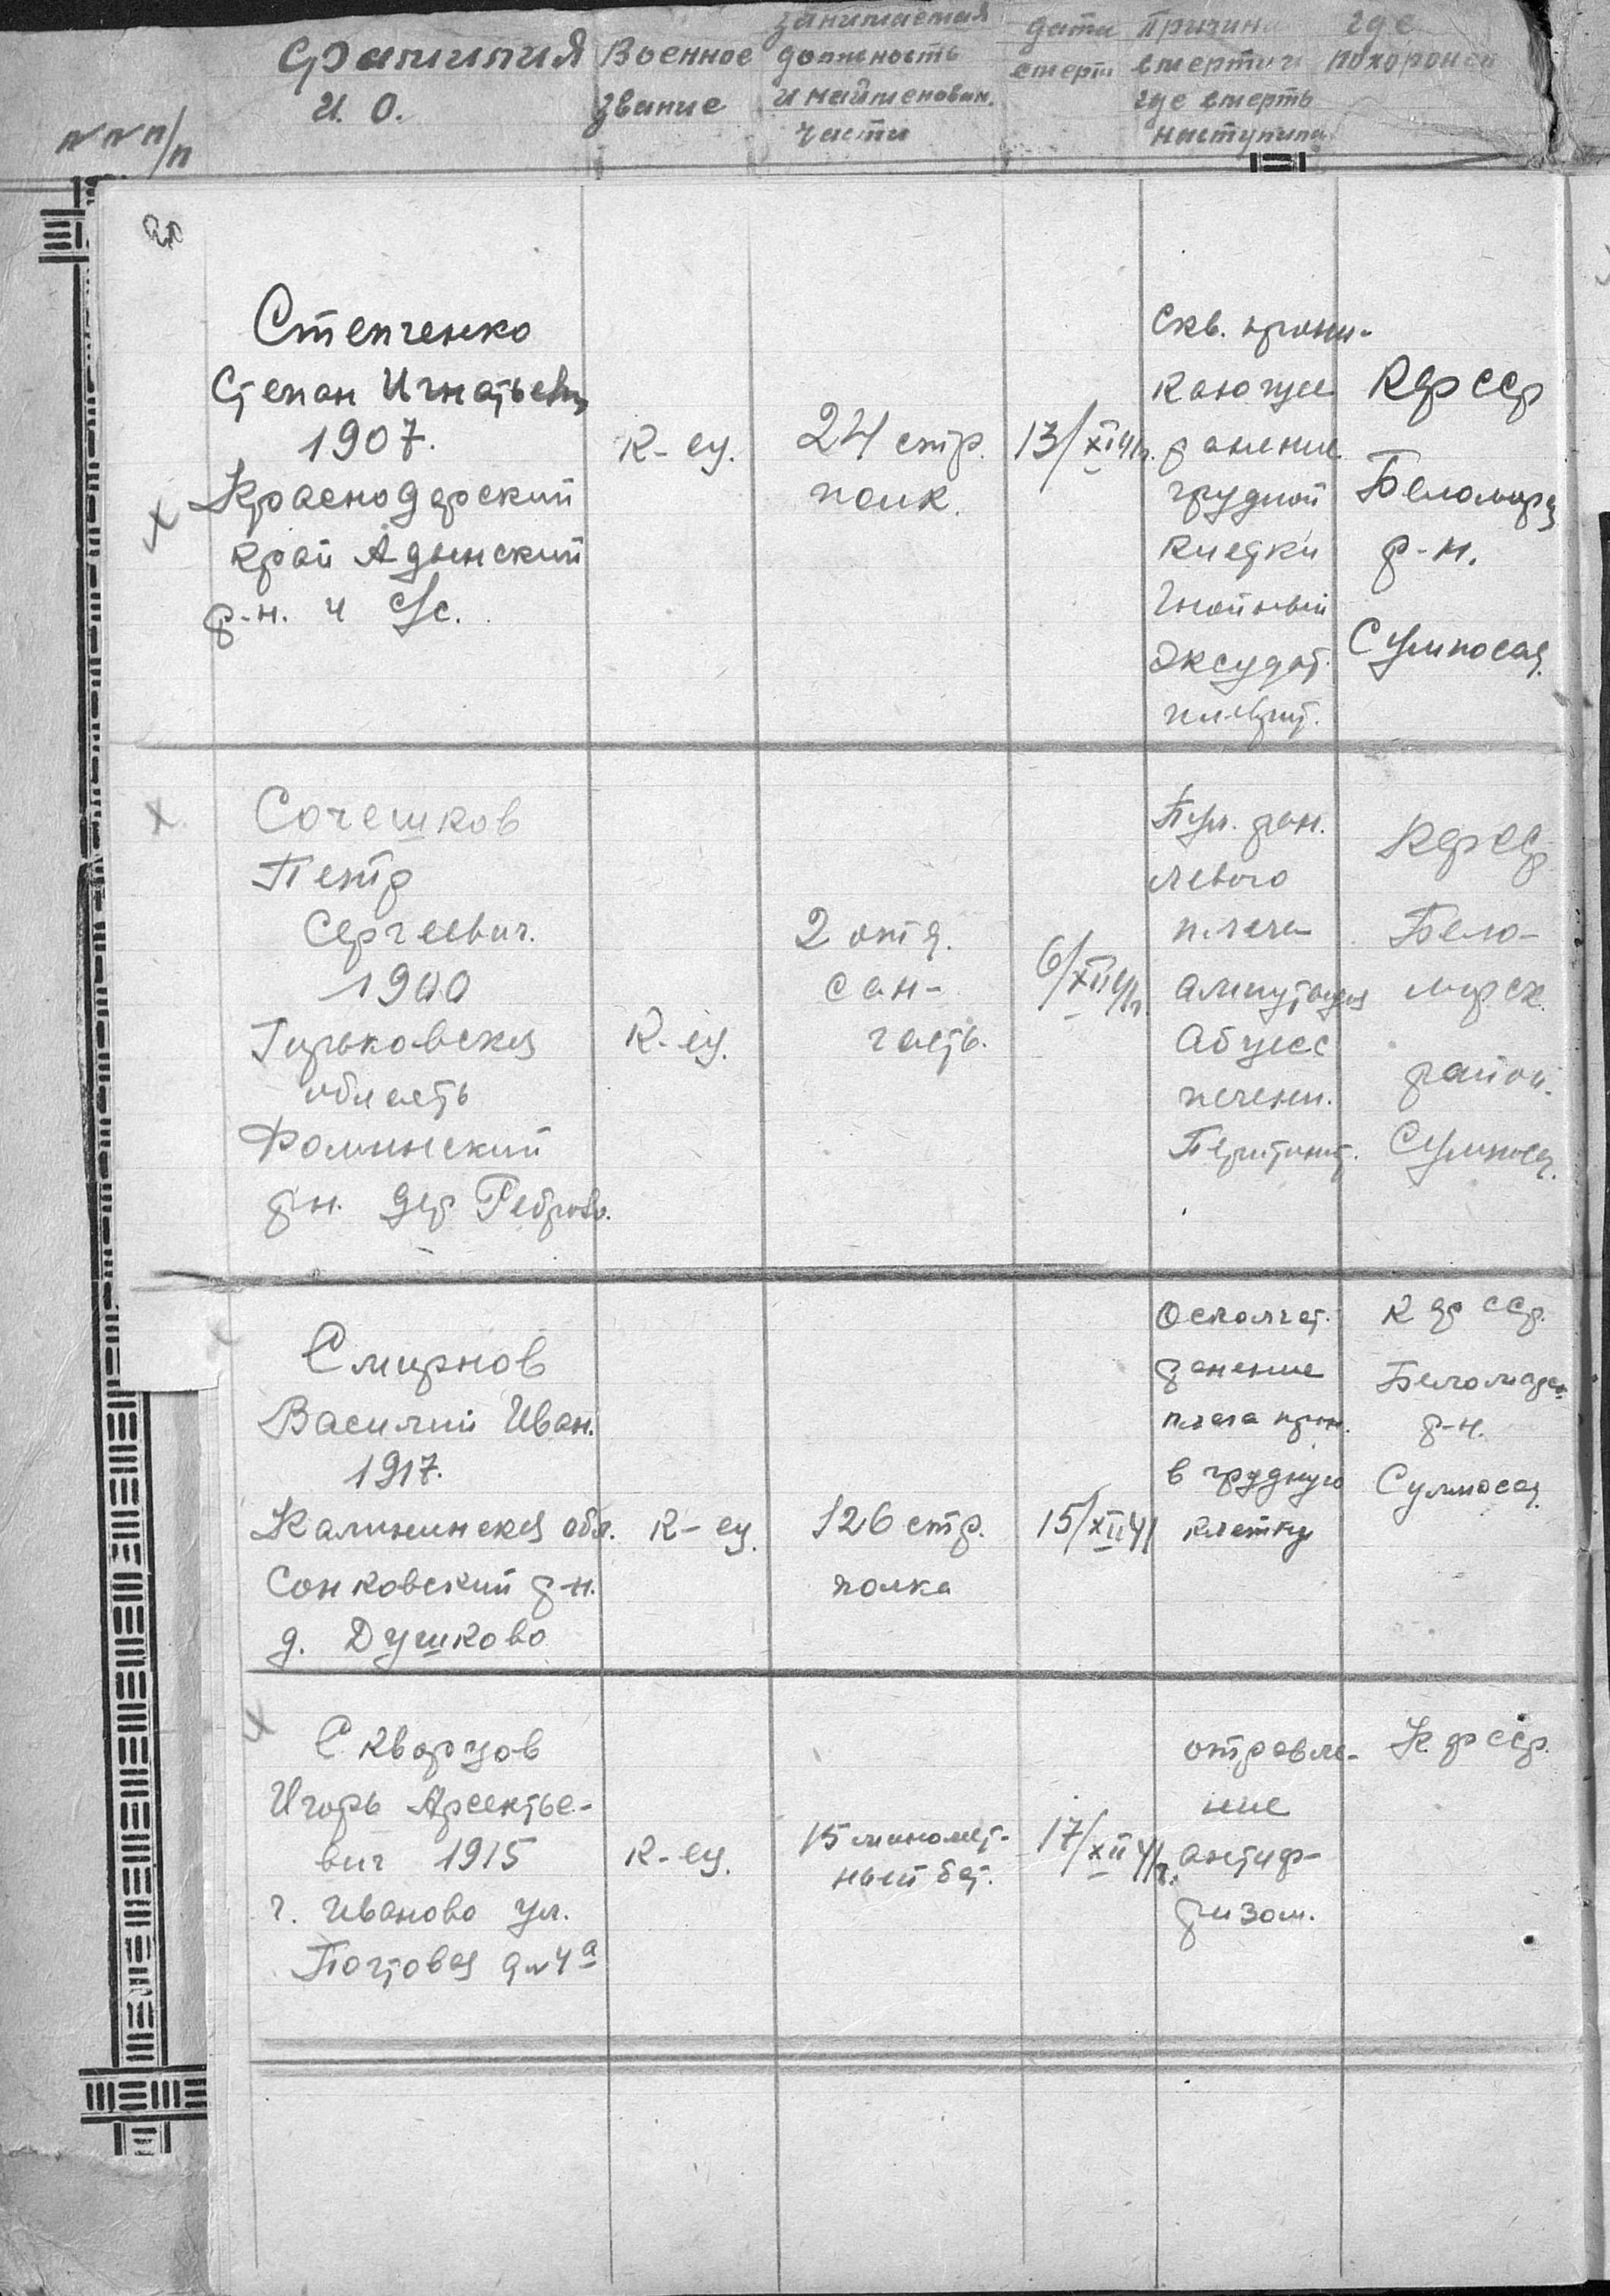 №№ п/п
Фамилия
И. О.
Военное
звание
занимаемая
должность
и наименован.
части
дата
смерти
Причина
смерти и
где смерть
наступила
где
похоронен
Степченко
Степан Игнатьевич
1907.
Краснодарский
край Адынский
р-н. ч с/с.
к-ец.
24 стр.
полк.
13/XI 41г.
Скв. прони-
кающее
ранение
грудной
клетки
Гнойный
эксудат.
плеврит.
КФССР
Беломорск
р-н.
Сумпосад.
Сочешков
Петр
Сергеевич.
1900
Горьковская
область
Фоминский
рн. дер Реброво.
К-ец.
2 отд.
сан-
часть.
6/XII 41г.
Пул. ран.
левого
плеча
ампутация
Абцесс
печени.
Перитонит.
КФССР
Бело-
морск.
район.
Сумпосад.
Смирнов
Василий Иван.
1917.
Калининская обл.
Сонковский р-н.
д. Душково
К-ец.
126 стр.
полка
15/XII 41
Осколчат.
ранение
плеча прон.
в грудную
клетку
КФССР.
Беломорск.
р-н.
Сумпосад.
Скворцов
Игорь Арсентье-
вич 1915
г. Иваново ул.
Почтовая д № 4а
К-ец.
15 миномет-
ный бат.
17/XII 41г.
отравле-
ние
антиф-
ризом.
К.ФССР.